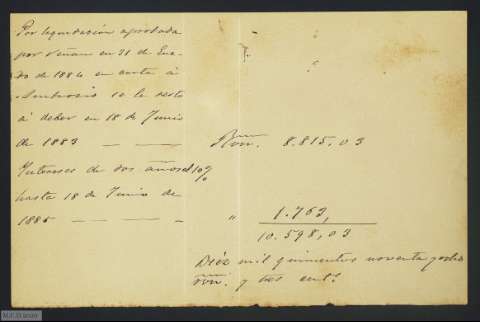 Por liquidación aprobada
por Viñam en 21 de Ene-
ro de 1884 en carta á
Ambrosio se le resta
á deber en 18 de Junio
de 1883 — — Rvn. 8.815,03
Intereses de dos años al 10%
hasta 18 de Junio de
1885 — — — " 1.763,
10.598,03
Diéz mil quinientos noventa y ocho
Rvn. y tres cent.s